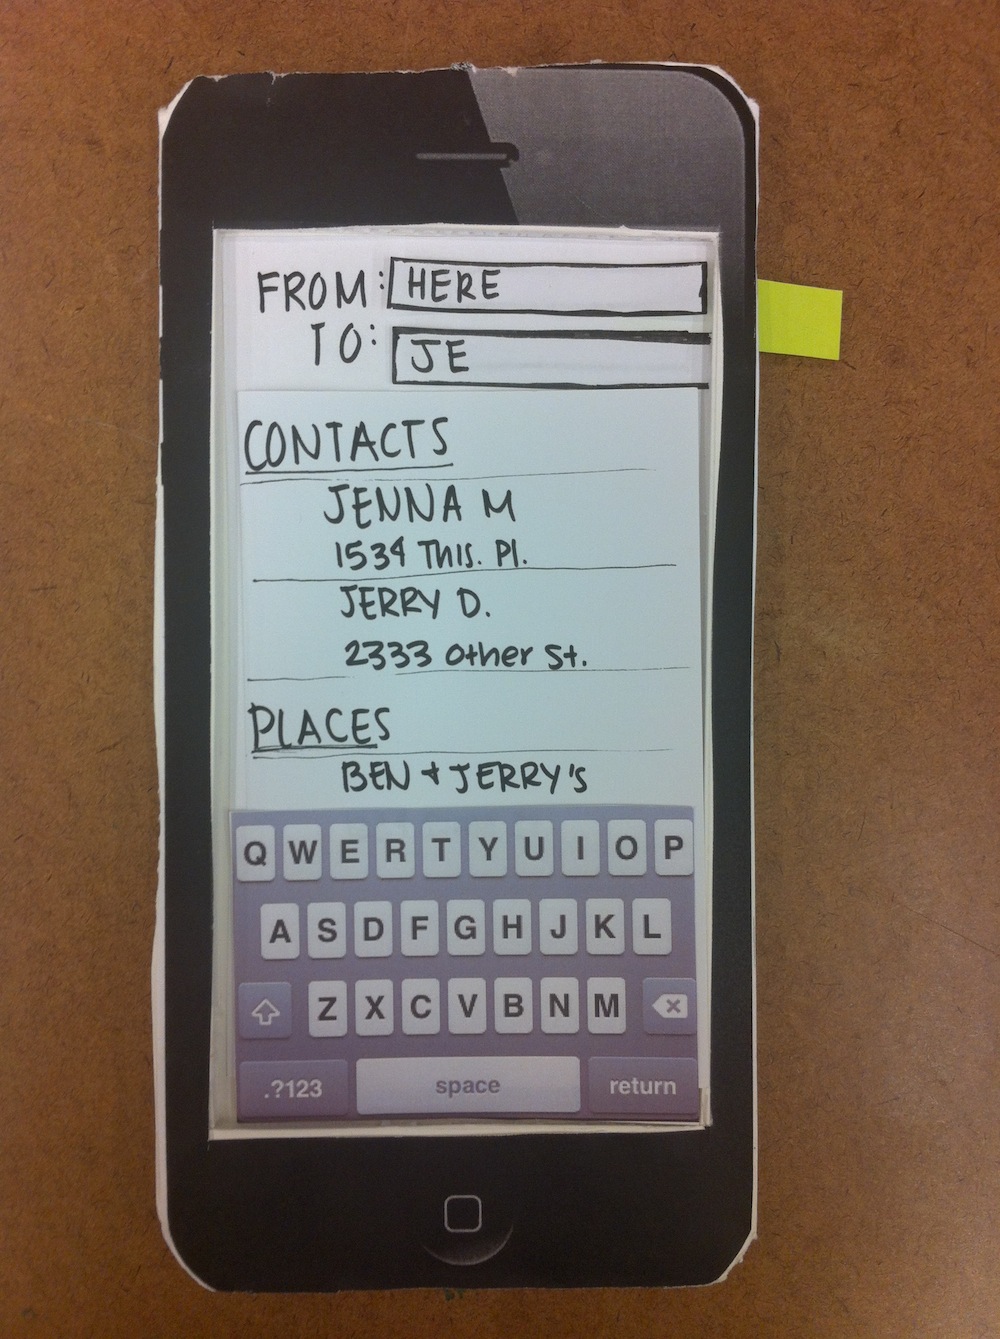 FROM: HERE
TO: JE
CONTACTS
JENNA M
1534 THIS. Pl.
JERRY D.
2333 Other St.
PLACES
BEN + JERRY'S
Q W E R T Y U I O P
A S D F G H J K L
Z X C V B N M
.?123 space return